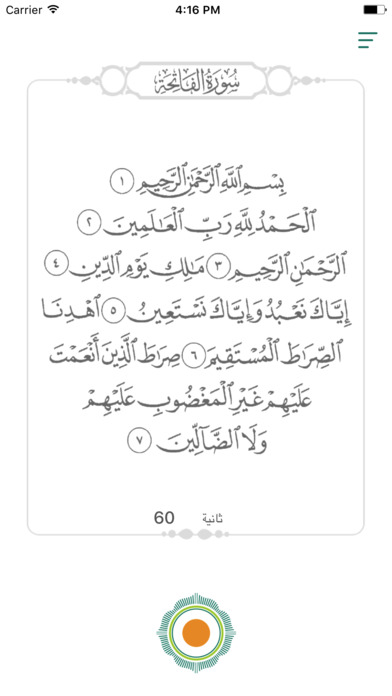 Carrier 4:16 PM
سُورَةُ الفَاتِحَةِ
بِسْمِ ٱللَّهِ ٱلرَّحْمَٰنِ ٱلرَّحِيمِ ١
ٱلْحَمْدُ لِلَّهِ رَبِّ ٱلْعَٰلَمِينَ ٢
ٱلرَّحْمَٰنِ ٱلرَّحِيمِ ٣ مَٰلِكِ يَوْمِ ٱلدِّينِ ٤
إِيَّاكَ نَعْبُدُ وَإِيَّاكَ نَسْتَعِينُ ٥ ٱهْدِنَا
ٱلصِّرَٰطَ ٱلْمُسْتَقِيمَ ٦ صِرَٰطَ ٱلَّذِينَ أَنْعَمْتَ
عَلَيْهِمْ غَيْرِ ٱلْمَغْضُوبِ عَلَيْهِمْ
وَلَا ٱلضَّآلِّينَ ٧
ثانية 60